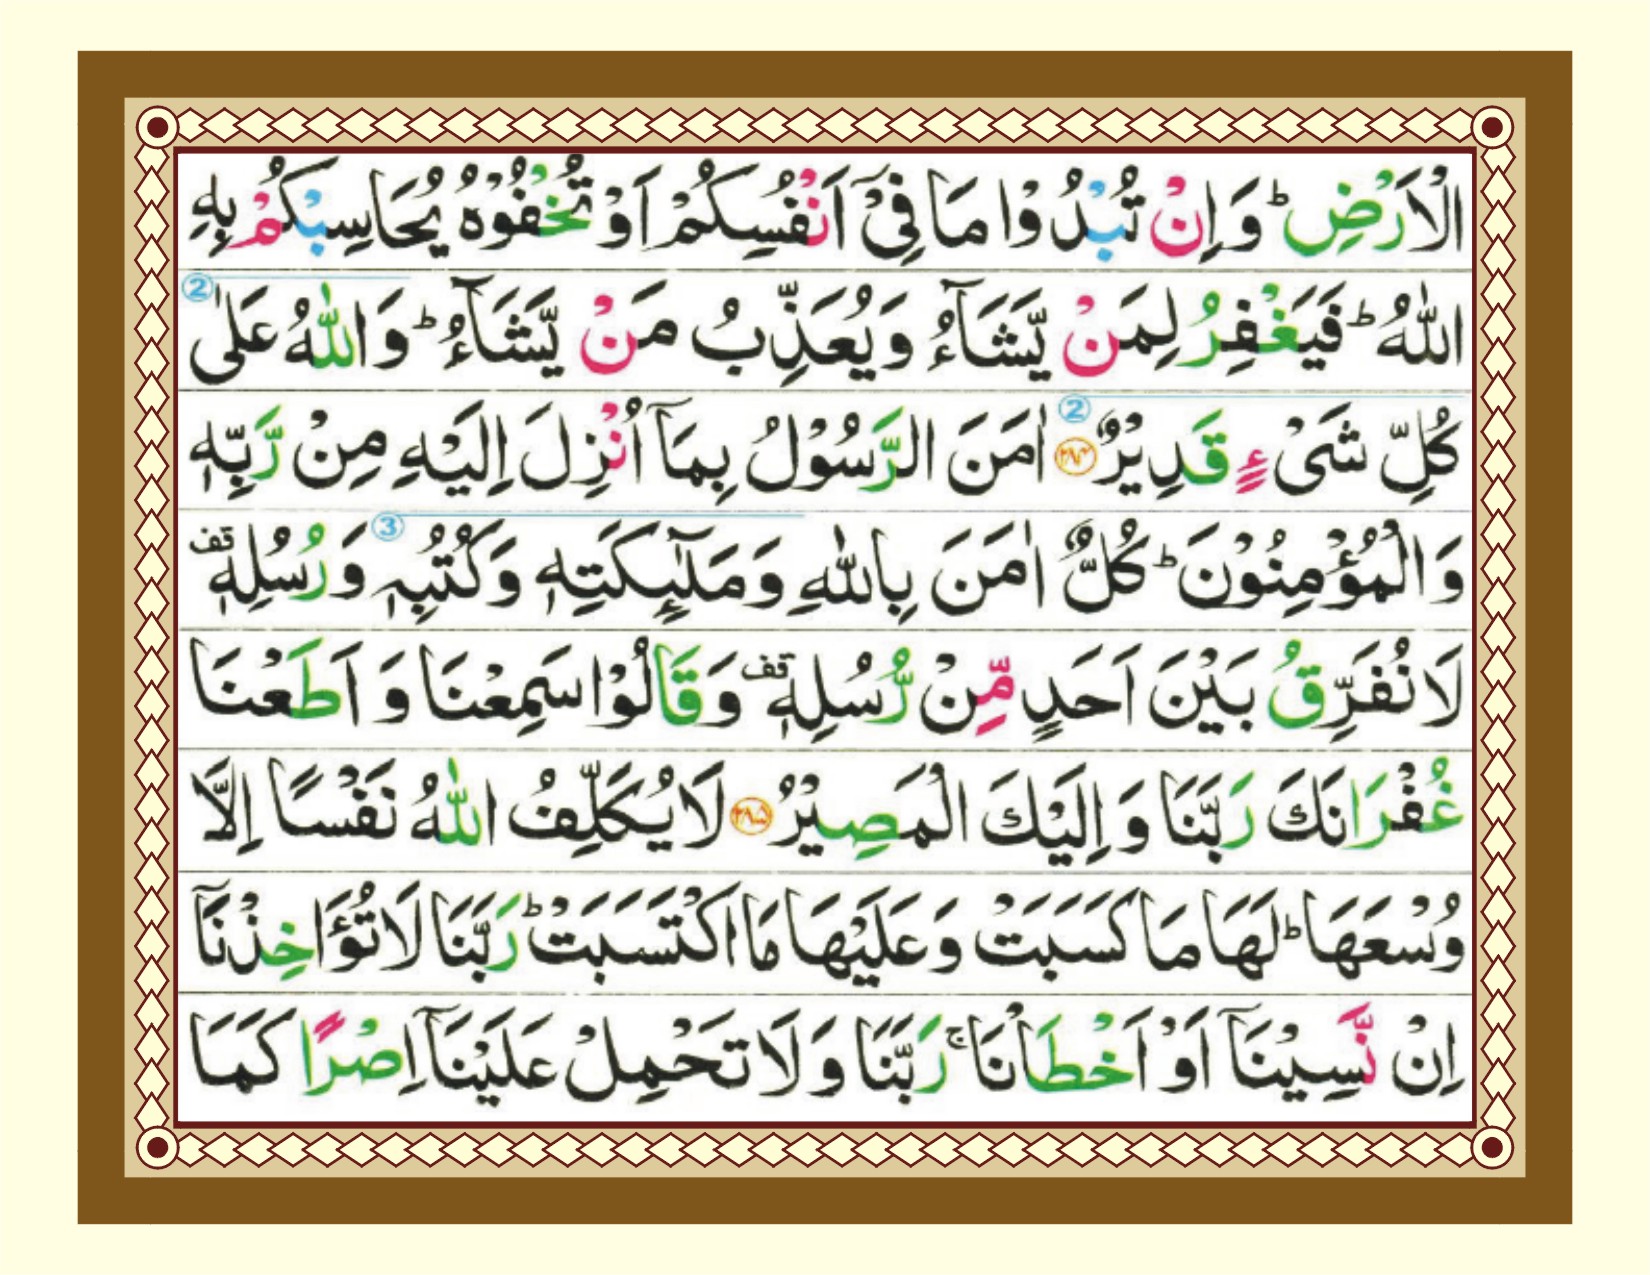 الْاَرْضِ ؕ وَاِنْ تُبْدُوْا مَا فِیْۤ اَنْفُسِكُمْ اَوْ تُخْفُوْهُ یُحَاسِبْكُمْ بِهِ
اللّٰهُ ؕ فَیَغْفِرُ لِمَنْ یَّشَآءُ وَیُعَذِّبُ مَنْ یَّشَآءُ ؕ وَاللّٰهُ عَلٰی 2
كُلِّ شَیْءٍ قَدِیْرٌ ﴿۲۸۴﴾ 2 اٰمَنَ الرَّسُوْلُ بِمَاۤ اُنْزِلَ اِلَیْهِ مِنْ رَّبِّهٖ
وَالْمُؤْمِنُوْنَ ؕ كُلٌّ اٰمَنَ بِاللّٰهِ وَمَلٰٓئِكَتِهٖ وَكُتُبِهٖ 3 وَرُسُلِهٖ قف
لَا نُفَرِّقُ بَیْنَ اَحَدٍ مِّنْ رُّسُلِهٖ قف وَقَالُوْا سَمِعْنَا وَ اَطَعْنَا
غُفْرَانَكَ رَبَّنَا وَ اِلَیْكَ الْمَصِیْرُ ﴿۲۸۵﴾ لَا یُكَلِّفُ اللّٰهُ نَفْسًا اِلَّا
وُسْعَهَا ؕ لَهَا مَا كَسَبَتْ وَعَلَیْهَا مَا اكْتَسَبَتْ ؕ رَبَّنَا لَا تُؤَاخِذْنَاۤ
اِنْ نَّسِیْنَاۤ اَوْ اَخْطَاْنَا ۚ رَبَّنَا وَ لَا تَحْمِلْ عَلَیْنَاۤ اِصْرًا كَمَا